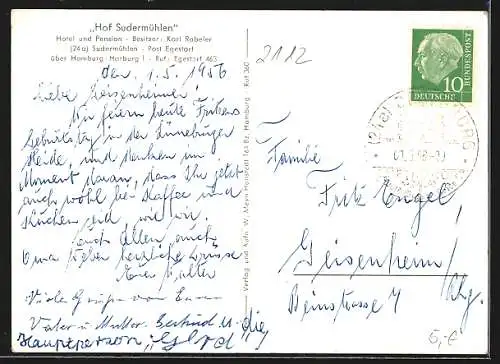 „Hof Sudermühlen"
Hotel und Pension - Besitzer: Karl Rabeler
(24a) Sudermühlen - Post Egestorf
über Hamburg-Harburg 1 - Ruf: Egestorf 463
2112
den 1.5.1956
Liebe Geisenheimer!
Wir feiern heute Fritzens
Geburtstag in der Lüneburger
Heide, und denken im
Moment daran, dass Ihr jetzt
auch wohl bei Kaffee und
Kuchen seid, wie wir.
Euch Allen, auch
Oma lieber herzliche Grüsse
Euer Walter
Viele Grüße von
Vater u. Mutter. Gertrud u. die
Hauptperson: „Gerd
Verlag und Aufn. W. Meyn Hollstedt Tel. Bz. Hamburg Ruf 360
DEUTSCHE
BUNDESPOST
10
Familie
Fritz Engel,
Geisenheim/
Rhg.
Beinstrasse 4
6,-€